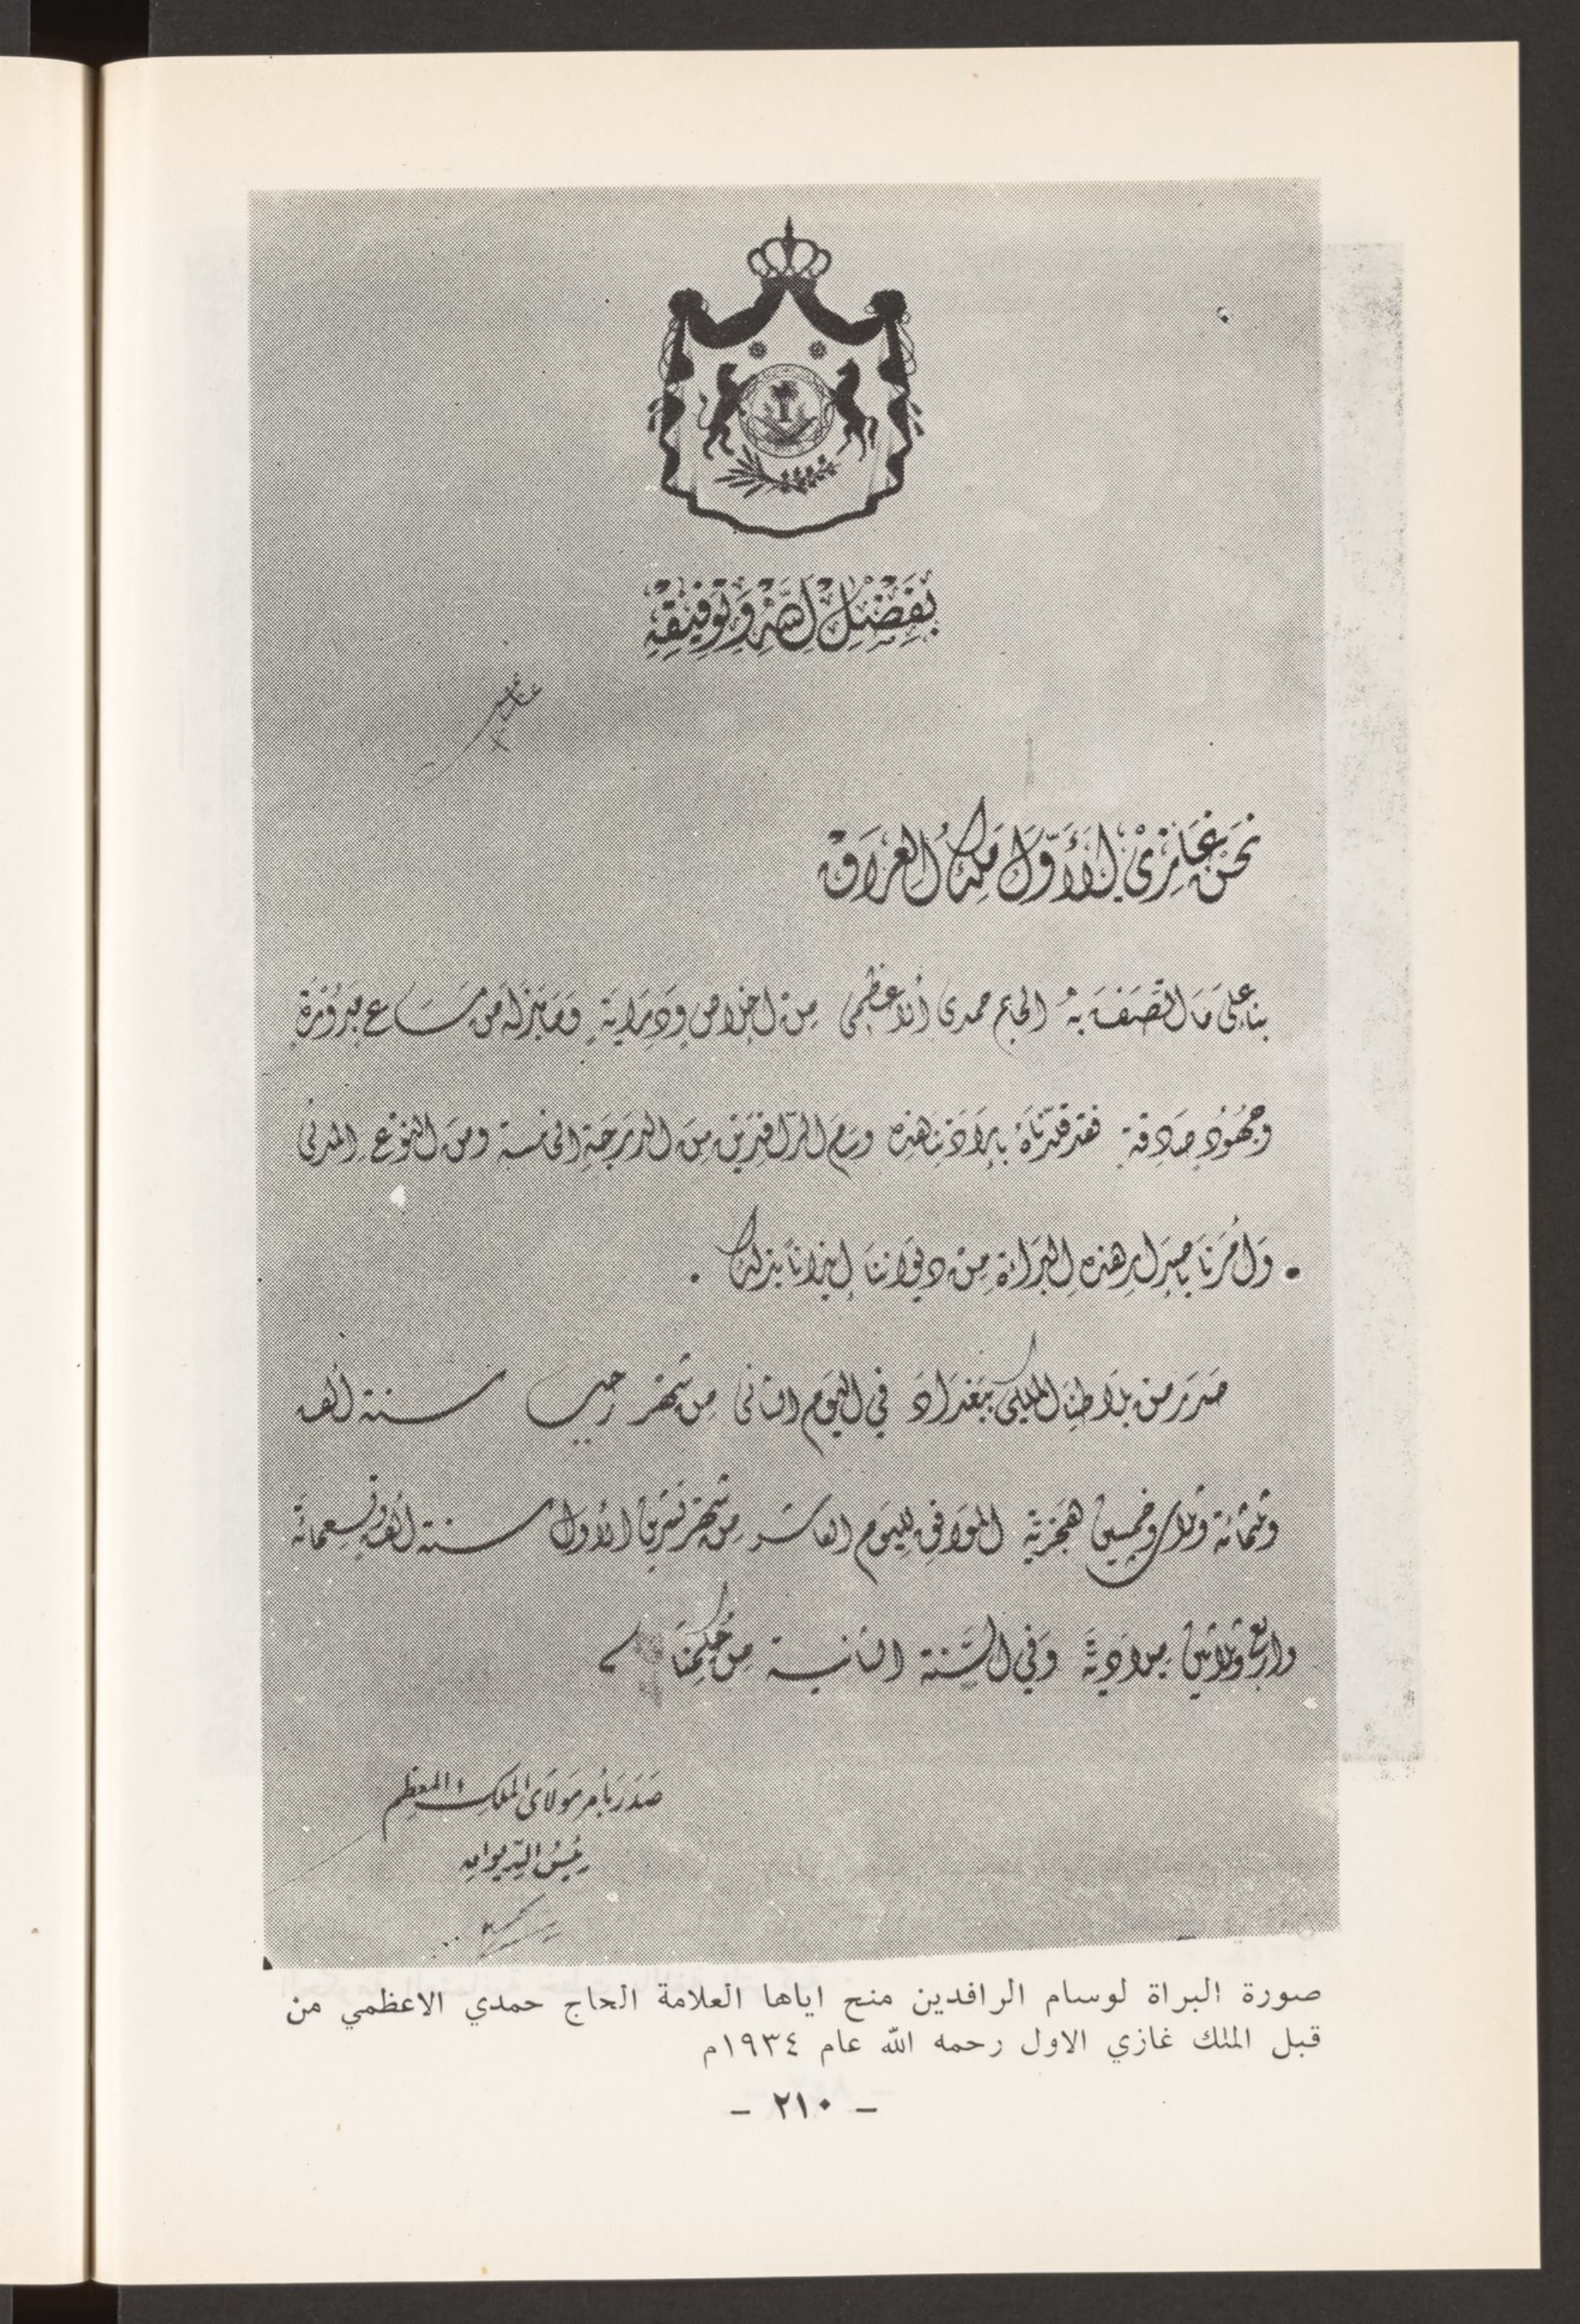 بفضل الله وتوفيقه
غازي
نحن غازي الأول ملك العراق
بناء على ما اتصف به الحاج حمدي الأعظمي من اخلاص ودراية وما بذله من مساع مبرورة
وجهود صادقة فقد قلدناه بإرادتنا هذه وسام الرافدين من الدرجة الخامسة ومن النوع المدني
وأمرنا بإصدار هذه البراءة من ديواننا إيذانا بذلك .
صدر من بلاطنا الملكي ببغداد في اليوم الثاني من شهر رجب سنة ألف
وثلثمائة وثلاث وخمسين هجرية الموافق لليوم العاشر من شهر تشرين الأول سنة ألف وتسعمائة
واربع وثلاثين ميلادية وفي السنة الثانية من حكمنا
صدر بأمر مولاي الملك المعظم
رئيس الديوان
صورة البراة لوسام الرافدين منح اياها العلامة الحاج حمدي الاعظمي من
قبل الملك غازي الاول رحمه الله عام ١٩٣٤م
- ٢١٠ -